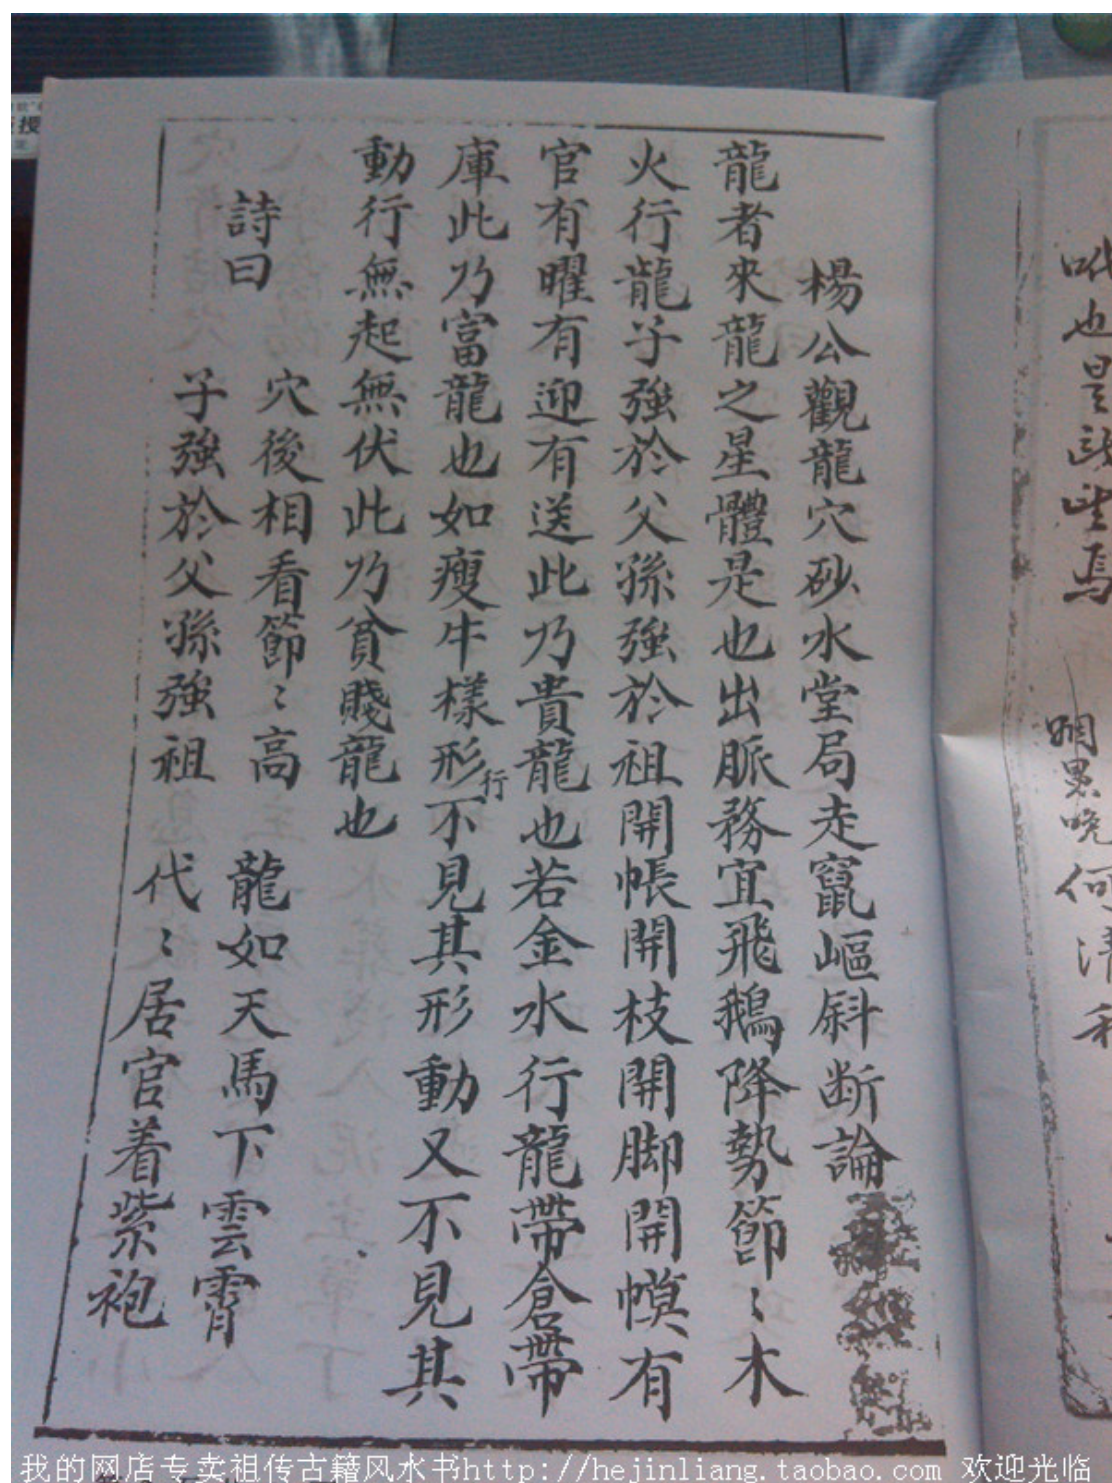 楊公觀龍穴砂水堂局走竄嶇斜断論
龍者來龍之星體是也出脈務宜飛鵝降勢節〻木
火行龍子強於父孫強於祖開帳開枝開脚開幙有
官有曜有迎有送此乃貴龍也若金水行龍帶倉帶
庫此乃富龍也如瘦牛樣形行不見其形動又不見其
動行無起無伏此乃貧賤龍也
詩曰
穴後相看節〻高 龍如天馬下雲霄
子強於父孫強祖 代〻居官着紫袍
也是
何清
我的网店专卖祖传古籍风水书http://hejinliang.taobao.com 欢迎光临